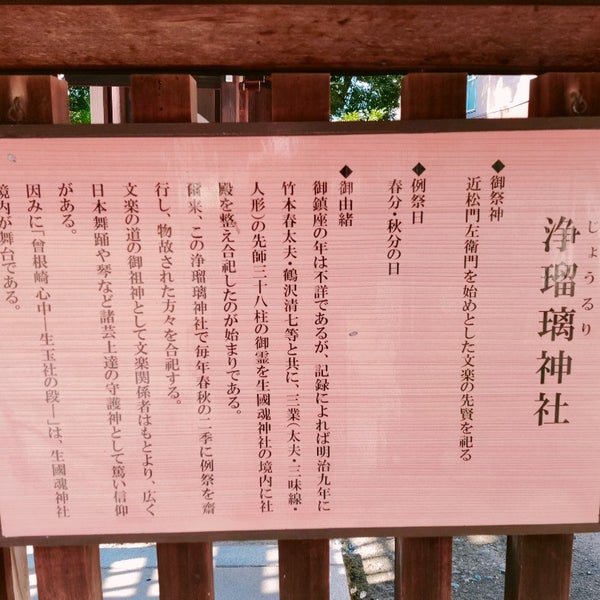 じょうるり
浄瑠璃神社
◆御祭神
近松門左衛門を始めとした文楽の先賢を祀る
◆例祭日
春分・秋分の日
◆御由緒
御鎮座の年は不詳であるが、記録によれば明治九年に
竹本春太夫・鶴沢清七等と共に、三業(太夫・三味線・
人形)の先師三十八柱の御霊を生國魂神社の境内に社
殿を整え合祀したのが始まりである。
爾来、この浄瑠璃神社で毎年春秋の二季に例祭を齋
行し、物故された方々を合祀する。
文楽の道の御祖神として文楽関係者はもとより、広く
日本舞踊や琴など諸芸上達の守護神として篤い信仰
がある。
因みに「曾根崎心中―生玉社の段―」は、生國魂神社
境内が舞台である。